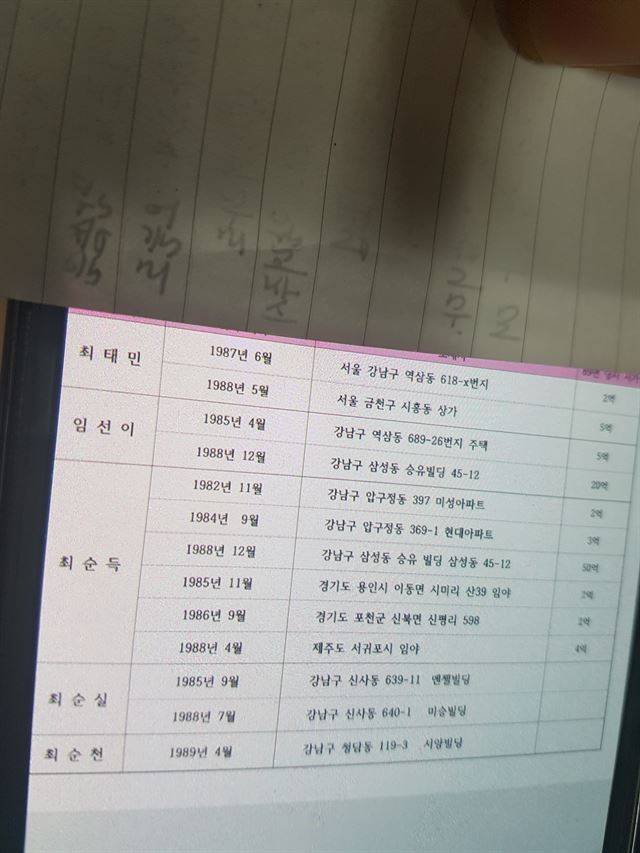 최태민 1987년 6월 서울 강남구 역삼동 618-x번지 2억
1988년 5월 서울 금천구 시흥동 상가 5억
임선이 1985년 4월 강남구 역삼동 689-26번지 주택 5억
1988년 12월 강남구 삼성동 승유빌딩 45-12 20억
최순득 1982년 11월 강남구 압구정동 397 미성아파트 2억
1984년 9월 강남구 압구정동 369-1 현대아파트 3억
1988년 12월 강남구 삼성동 승유 빌딩 삼성동 45-12 50억
1985년 11월 경기도 용인시 이동면 시미리 산39 임야 2억
1986년 9월 경기도 포천군 신북면 신평리 598 2억
1988년 4월 제주도 서귀포시 임야 4억
최순실 1985년 9월 강남구 신사동 639-11 멘젤빌딩
1988년 7월 강남구 신사동 640-1 미승빌딩
최순천 1989년 4월 강남구 청담동 119-3 시양빌딩